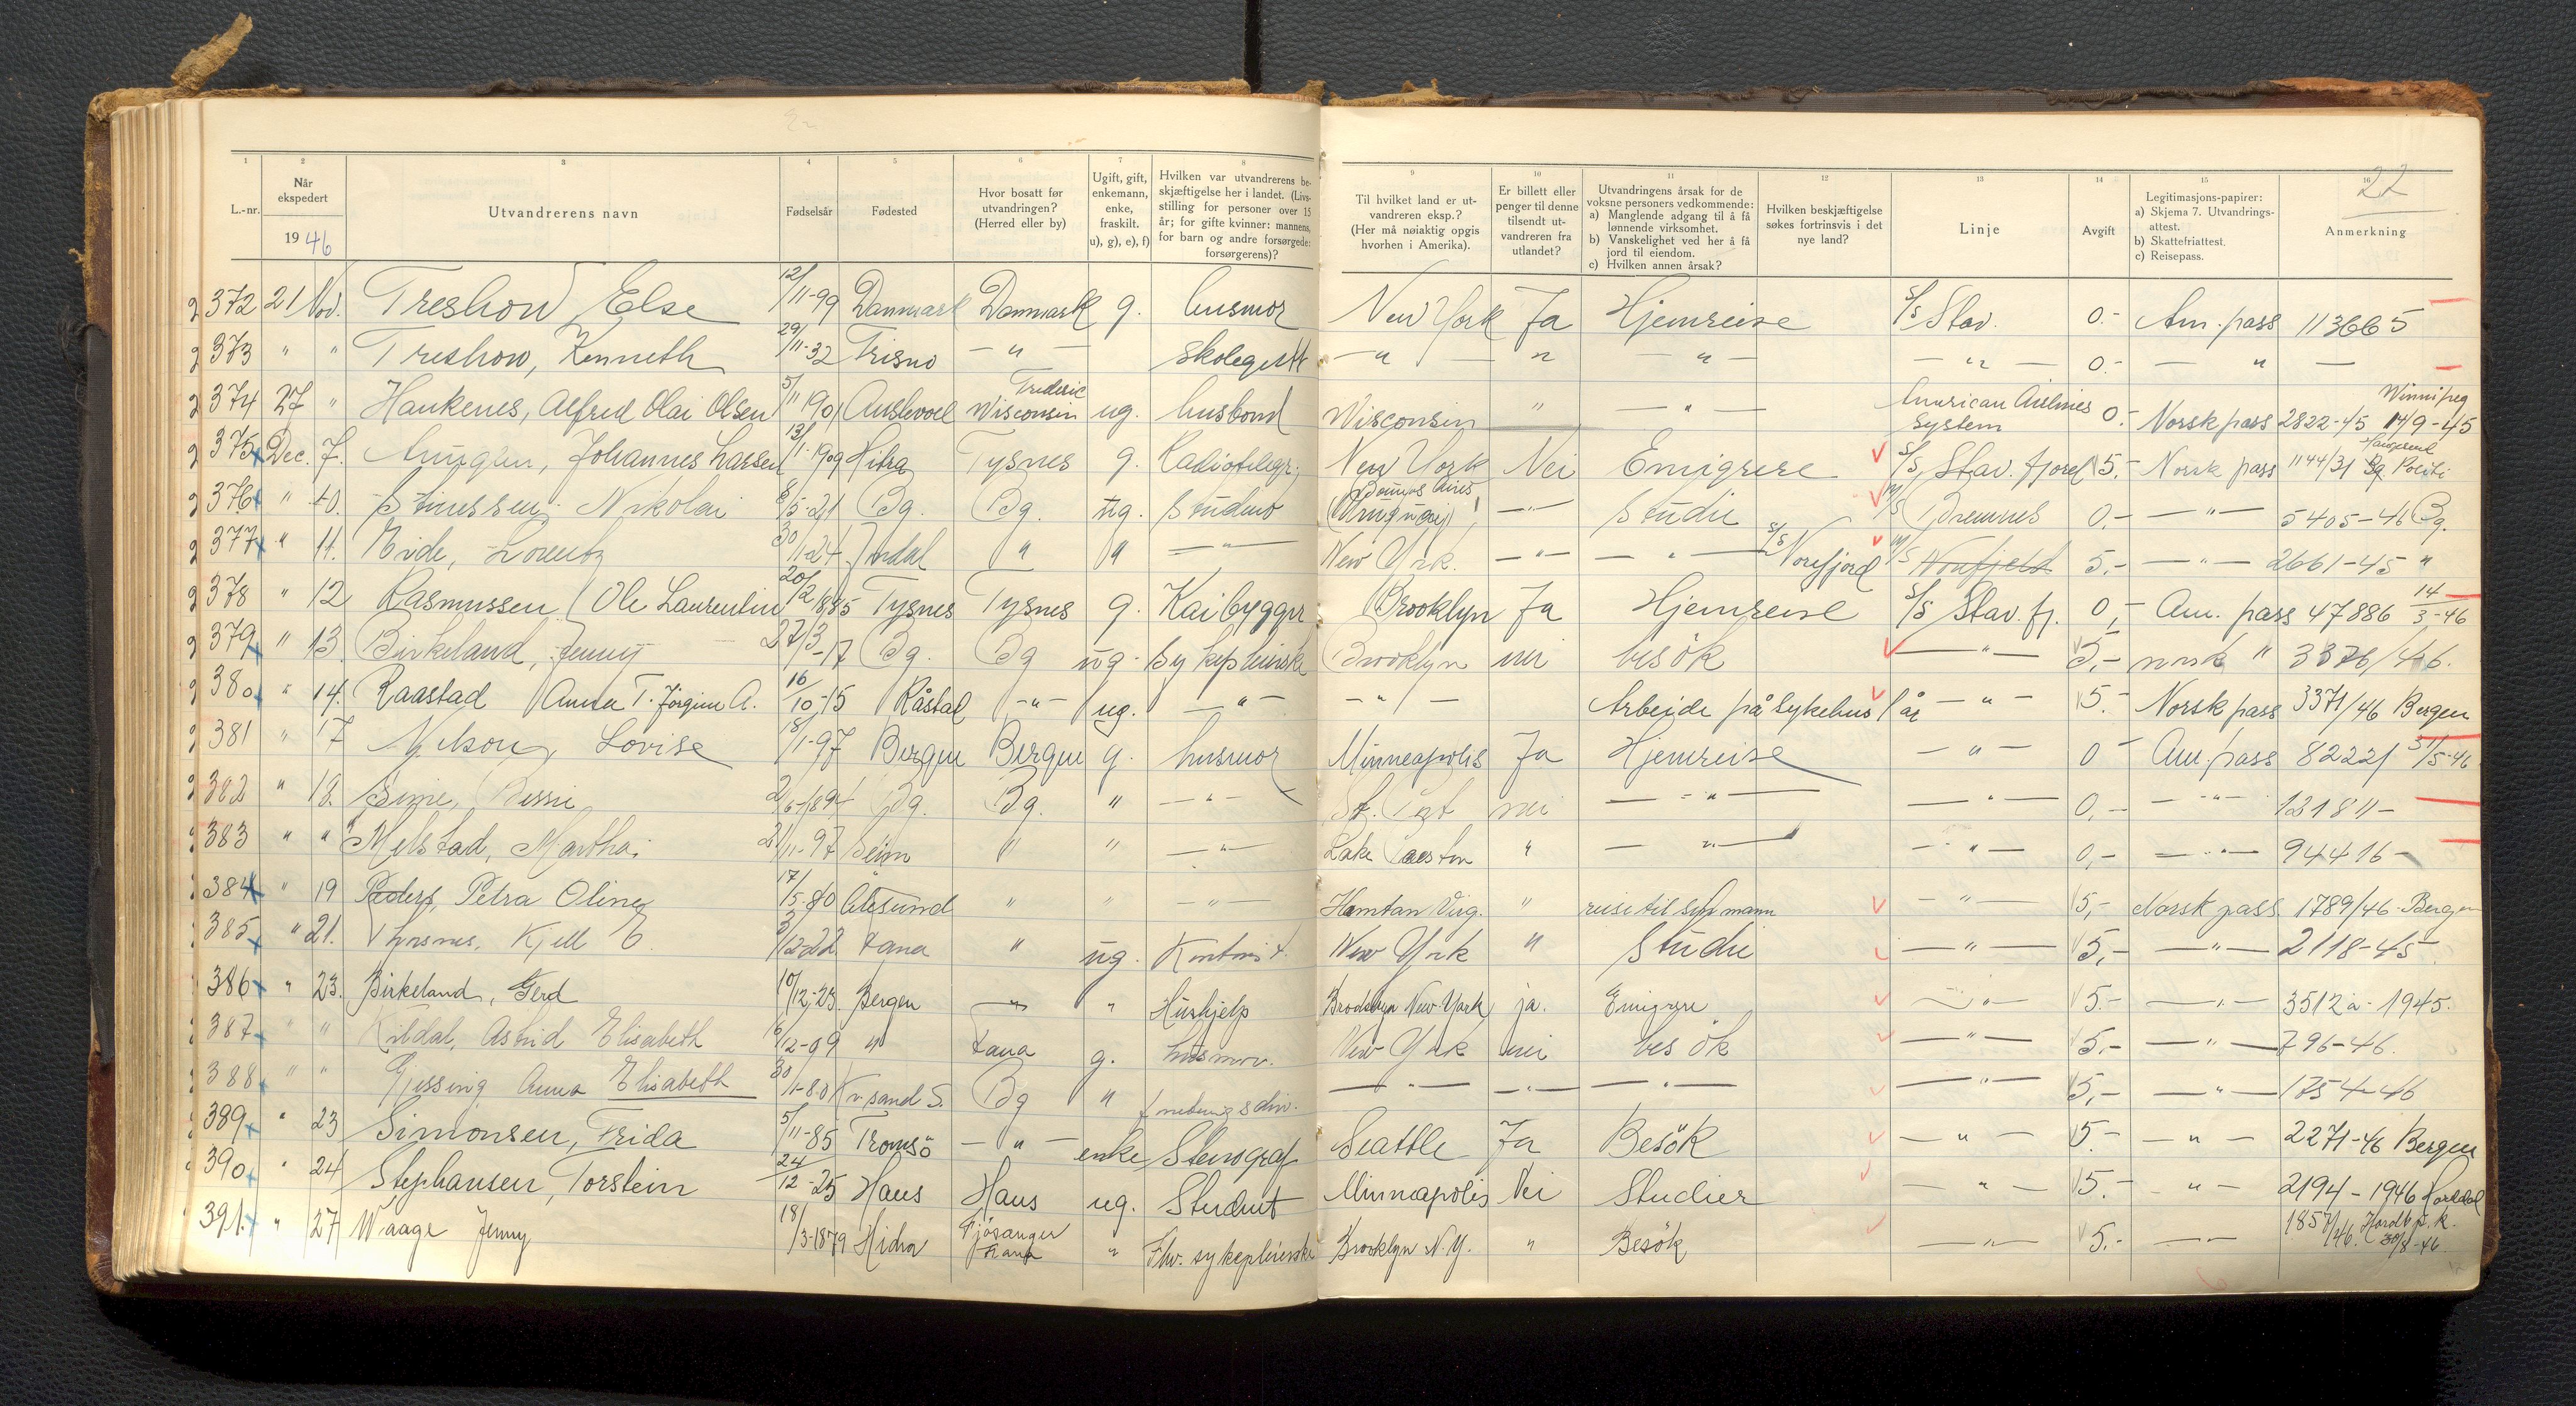 22
1 2 3 4 5 6 7 8 9 10 11 12 13 14 15 16
L.-nr. Når ekspedert 1946 Utvandrerens navn Fødselsår Fødested Hvor bosatt før utvandringen? (Herred eller by) Ugift, gift, enkemann, enke, fraskilt. u), g), e), f) Hvilken var utvandrerens beskjæftigelse her i landet. (Livsstilling for personer over 15 år; for gifte kvinner: mannens, for barn og andre forsørgede: forsørgerens)? Til hvilket land er utvandreren eksp.? (Her må nøiaktig opgis hvorhen i Amerika). Er billett eller penger til denne tilsendt utvandreren fra utlandet? Utvandringens årsak for de voksne personers vedkommende: a) Manglende adgang til å få lønnende virksomhet. b) Vanskelighet ved her å få jord til eiendom. c) Hvilken annen årsak? Hvilken beskjæftigelse søkes fortrinsvis i det nye land? Linje Avgift Legitimasjons-papirer: a) Skjema 7. Utvandringsattest. b) Skattefriattest. c) Reisepass. Anmerkning
372 21 Nov. Treshow Else 12/11-99 Danmark Danmark g. husmor New York Ja Hjemreise S/S Stav. 0.- Am. pass 113665
373 " " Treshow, Kenneth 29/11-32 - " - New - " - " - " - - " - 0.- - " -
374 27 " Haukenes, Alfred Olai Olsen 5/11 1901 Frederic Wisconsin ug. husbond Wisconsin " - " - American Airlines System 0.- Norsk pass 2822-45 Winnipeg 14/9-45
375 Dec. 7. Johannes Larsen 13/1-1909 Hitra Tysnes g. Radiotelegr. New York Nei Emigrere S/S Stav.fjord 5.- Norsk pass 1144/31 Bg. Politi
376 " 10. Nikolai 8/5-21 Bg. Bg. ug. Buenos Aires (Uruguay) - " - Studie Bremnes 0.- - " - 5405-46 Bg.
377 " 11. Eide, Lorentz 30/11-24 " " - " - New York. - " - - " - S/S Norefjord 5.- - " - 2661-45 "
378 " 12 Rasmussen, Ole Laurentin 20/12 1885 Tysnes Tysnes g. Kaibygger Brooklyn Ja Hjemreise S/S Stav.fj. 0,- Am. pass 47886 14/3-46
379 " 13. Birkeland, Jenny 27/3-17 Bg. Bg ug. Sykepleierske Brooklyn nei besök - " - 5,- norsk " 3876/46.
380 " 14. Raastad Anna T. Jörgine A. 16/10-15 Råstad - " - ug. - " - - " - Arbeide på Sykehus 1 år - " - 5.- Norsk pass 3371/46 Bergen
381 " 17 Nelson, Lovise 18/1-97 Bergen Bergen g. husmor Minneapolis Ja Hjemreise - " - 0 - Am. pass 82221 31/5-46
382 " 18. Bessie 2/6-1894 Bg. Bg. " - " - nei - " - - " - 0,- - " - 121811-
383 " " Melstad, Martha. 21/11-97 " " - " - Lake " - " - - " - 0,- - " - 94416-
384 " 19 Peders, Petra Oline 17/5-80 Ålesund " " - " - Hamtan Virg. " reise til sin mann - " - 5,- Norsk pass 1789/46 - Bergen
385 " 21. Kjell 3/12-22 Fana " ug. Kontorist New York " Studie - " - 5,- - " - 2118-45
386 " 23. Birkeland, Gerd 10/12-23. Bergen - " - " Hushjelp Brooklyn New-York ja. Emigrere - " - 5.- - " - 3512a-1945.
387 " " Kildal, Astrid Elisabeth 16/12-09 " Fana g. husmor. New York nei besök - " - 5.- - " - 796-46.
388 " " Gjessing Anna Elisabeth 30/1-80 Kr.sand S. Bg " - " - - " - - " - - " - 5,- - " - 1754-46
389 " 23 Simonsen, Frida 5/11-85 Tromsö - " - enke Stenograf Seattle Ja Besök - " - 5.- - " - 2271-46 Bergen
390 " 24 Stephansen, Torstein 24/12-25 Haus Haus ug. Student Minneapolis Nei Studier - " - 5.- - " - 2194-1946 Hordal
391. " 27 Waage Jenny 18/3-1879 Hidra Fjösanger Fana " Fhv. sykepleierske Brooklyn N.Y. " Besök - " - 5.- - " - 1857/46. Hordl. p.k. 30/8-46.